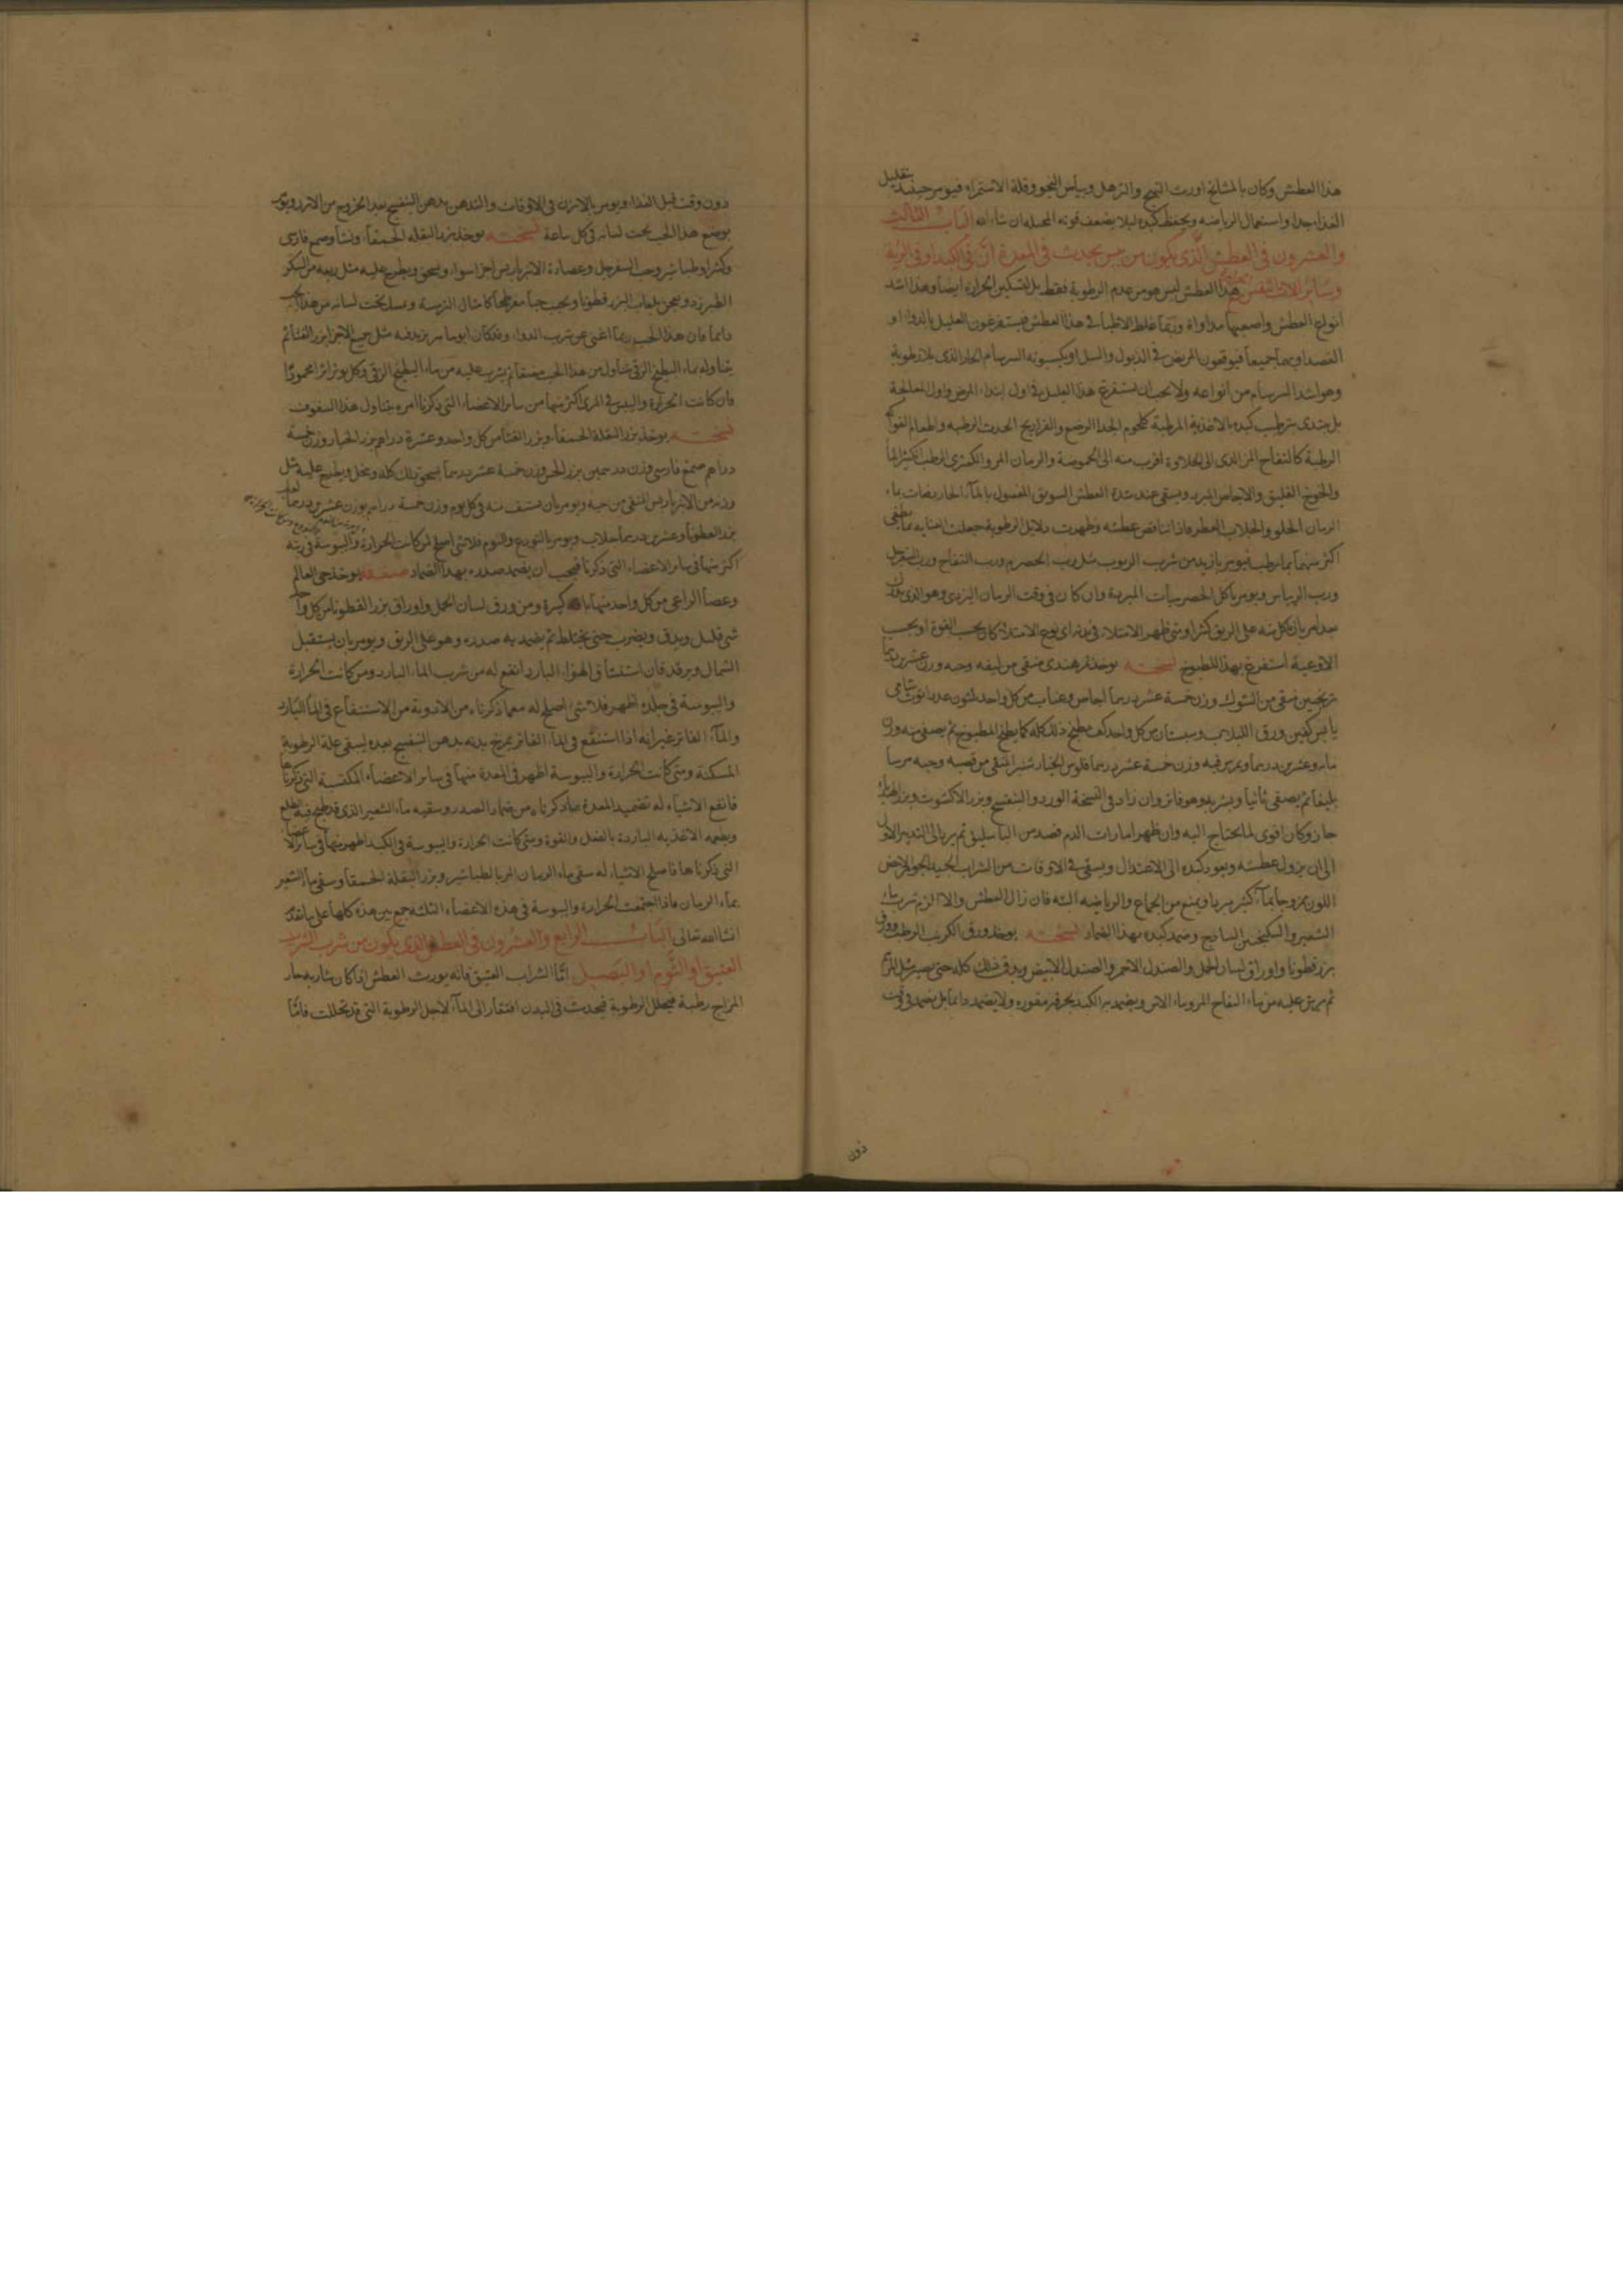 هذا العطش وكان بالمشايخ اورث التهيج والترهل ويبأس النجو وقلة الاستمراء فيومر حينئذ بتقليل
الغذا جدا واستعمال الرياضه ويحفظ كبده ليلا يضعف قوته المحيله ان شاء الله الباب الثالث
والعشرون في العطش الذى يكون من يبس يحدث في المعدة او في الكبد او في الرية
وسائر الات التنفس هذا العطش ليس هو من عدم الرطوبة فقط بل لتسكين الحرارة ايضا وهذا اشد
انواع العطش واصعبها مداواة وربما غلط الاطبا في هذا العطش فيستفرغون العليل بالدوا او
الفصد او بهما جميعا فيوقعون المريض في الذبول والسل او يكسبونه السرسام الحار الذى بلا رطوبة
وهو اشد السرسام من انواعه ولا يجب ان يستفرغ هذا العليل في اول ابتداء المرض واول المعالجة
بل يبتدى بترطيب كبده بالاغذية المرطبة كلحوم الجدا الرضع والفراريج الحدث الرطبه واطعام الفواكه
الرطبة كالتفاح المز الذى الى الحلاوة اقرب منه الى الحموضة والرمان المز والكمثرى الرطب الكثير الما
والخوخ الفليق والاجاص المبرد ويسقى عند شدة العطش السويق المغسول بالماء الحار دفعات بماء
الرمان الحلو والجلاب العطر فاذا تناقص عطشه وظهرت دلايل الرطوبة جعلت العنايه بما يطفى
اكثر منهما بما يرطب فيومر بازيد من شرب الربوب مثل رب الحصرم ورب التفاح ورب السفرجل
ورب الريباس ويومر باكل الحصرميات المبردة وان كان في وقت الرمان اليزدى وهو الذى
بعد امر بان ياكل منه على الريق كثيرا ومتى ظهر الامتلاء في بدنه اى نوع الامتلاء كان بحسب القوة او بحسب
الاوعية استفرغ بهذا المطبوخ نسخته يوخذ تمر هندى منقى من ليفه وحبه وزن عشرين درهما
ترنجبين منقى من الشوك وزن خمسة عشر درهما اجاص وعناب من كل واحد ثلثون عددا توت شامى
يابس كفين ورق اللبلاب وسبستان من كل واحد كف يطبخ ذلك كله كما يطبخ المطبوخ ثم يصفى منه وزن
مايه وعشرين درهما ويمرس فيه وزن خمسة عشر درهما فلوس الخيار شنبر المنقى من قصبه وحبه مرسا
بليغا ثم يصفى ثانيا ويشربه وهو فاتر وان زاد في النسخة الورد والبنفسج وبزر الاكشوث وبزر الهندبا
جاز وكان اقوى لما يحتاج اليه وان ظهر امارات الدم فصد من الباسليق ثم يرد الى التدبير الاول
الى ان يزول عطشه ويعود كبده الى الاعتدال ويسقى في الاوقات من الشراب الجيد الجوهر الابيض
اللون ممزوجا بماء كثير مبرد ويمنع من الجماع والرياضه البتة فان زال العطش والا الزم شرب ماء
الشعير والسكنجبين الساذج وضمد كبده بهذا الضماد نسخته يوخذ ورق الكرنب الرطب وورق
بزر قطونا واوراق لسان الحمل والصندل الاحمر والصندل الابيض ويدق ذلك كله حتى يصير مثل المرهم
ثم يرش عليه من ماء التفاح المز وماء الاس ويضمد به الكبد بخرقة مقوره ولا يضمد دايما بل يضمد في وقت
دون
دون وقت قبل الغذاء ويومر بالابزن في الاوقات والتدهن بدهن البنفسج بعد الخروج من الابزن ويومر
بوضع هذا الحب تحت لسانه في كل ساعة نسخته يوخذ بزر البقلة الحمقا ونشا وصمغ فارسى
وكثيرا وطباشير وحب السفرجل وعصارة الانبرباريس اجزا سواء ويسحق ويطرح عليه مثل ربعه من السكر
الطبرزد ويعجن بلعاب البزر قطونا ويحبب حبا مفرطحا كامثال الترمسة ويمسك تحت لسانه من هذا الحب
دائما فان هذا الحب ربما اغنى عن شرب الدواء وقد كان ابو ماهر يزيد فيه مثل جميع الاجزا بزر القثا ثم
يتناوله بماء البطيخ الرقى يتناول من هذا الحب مضغا ثم يشرب عليه من ماء البطيخ الرقى وكل يوثر اثرا محمودا
فان كانت الحرارة واليبس في المرى اكثر منها من سائر الاعضاء التى ذكرنا امره بتناول هذا السفوف
نسخته يوخذ بزر البقلة الحمقا وبزر القثا من كل واحد وعشرة دراهم بزر الخيار وزن خمسة
دراهم صمغ فارسى وزن درهمين بزر الخس وزن خمسة عشر درهما يسحق ذلك كله وينخل ويطرح عليه مثل
وزنه من الانبرباريس المنقى من حبه ويومر بان يستف منه في كل يوم وزن خمسة دراهم بوزن عشرين درهما لعاب
بزر القطونا وعشرين درهما جلاب ويومر بالتورع والنوم فلا شى اصلح لمن كانت الحرارة واليبوسة في ريته
اكثر منها في سائر الاعضاء التى ذكرنا فيجب ان يضمد صدره بهذا الضماد صفته يوخذ حى العالم
وعصا الراعى من كل واحد منهما باقة كبيرة ومن ورق لسان الحمل واوراق بزر القطونا من كل واحد
شى قليل ويدق ويضرب حتى يختلط ثم يضمد به صدره وهو على الريق ويومر بان يستقبل
الشمال ويرقد فان استنشاق الهواء البارد انفع له من شرب الماء البارد ومن كانت الحرارة
واليبوسة في جلده اظهر فلا شى اصلح له مع ما ذكرناه من الادوية من الاستنقاع في الماء البارد
والماء الفاتر غير انه اذا استنقع في الماء الفاتر يمرخ بدنه بدهن البنفسج بعده ليبقى عليه الرطوبة
المسكنة ومتى كانت الحرارة واليبوسة اظهر في المعدة منها في سائر الاعضاء المكتسبة التى ذكرناها
فانفع الاشياء له تضميد المعدة بما ذكرناه من ضماد الصدر وسقيه ماء الشعير الذى قد طبخ فيه الطلع
ويطعمه الاغذيه الباردة بالفعل والقوة ومتى كانت الحرارة واليبوسة في الكبد اظهر منها في سائر الاعضاء
التى ذكرناها فاصلح الاشياء له سقى ماء الرمان المز بالطباشير وبزر البقلة الحمقا وسقى ماء الشعير
بماء الرمان فاذا اجتمعت الحرارة واليبوسة في هذه الاعضاء الثلثه جمع بين هذه كلها على ما تقدم
ان شا الله تعالى الباب الرابع والعشرون في العطش الذى يكون من شرب الشراب
العتيق او الثوم او البصل اما الشراب العتيق فانه يورث العطش اذا كان شاربه حار
المزاج رطبة فيحلل الرطوبة فيحدث في البدن افتقارا الى الماء لاجل الرطوبة التى قد تحللت فاما